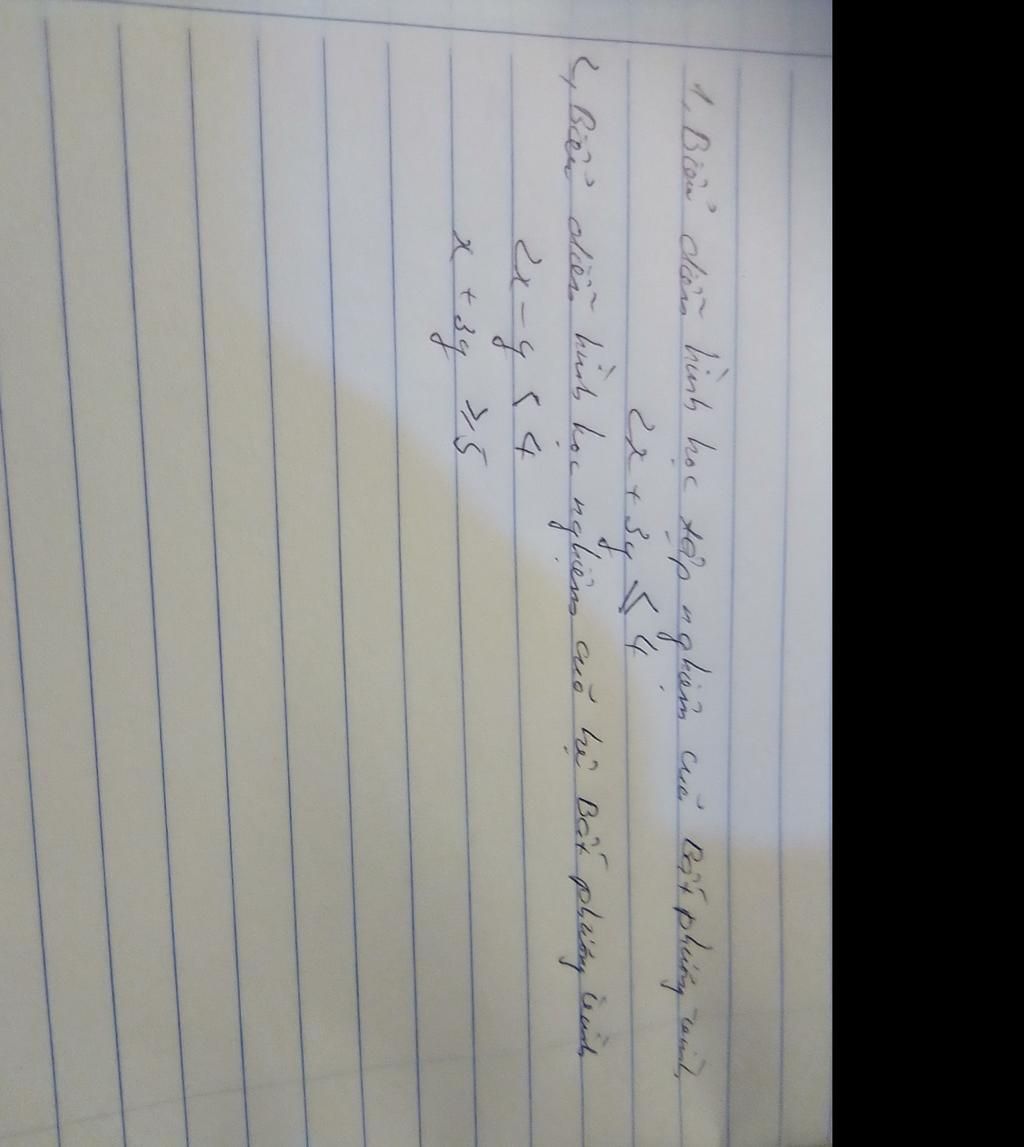 1, Biểu diễn hình học tập nghiệm của Bất phương trình
2x + 3y ≤ 4
2, Biểu diễn hình học nghiệm của hệ Bất phương trình
2x - y < 4
x + 3y ≥ 5